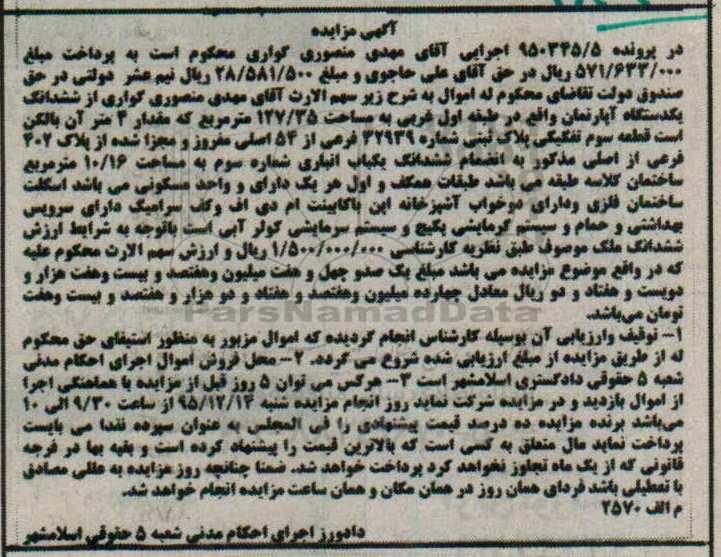 آگهی مزایده
در پرونده ۹۵۰۳۴۵/۵ اجرایی آقای مهدی منصوری کواری محکوم است به پرداخت مبلغ
۵۷۱/۶۳۳/۰۰۰ ریال در حق آقای علی حاجوی و مبلغ ۲۸/۵۸۱/۵۰۰ ریال نیم عشر دولتی در حق
صندوق دولت تقاضای محکوم له اموال به شرح زیر سهم الارث آقای مهدی منصوری کواری از ششدانگ
یکدستگاه آپارتمان واقع در طبقه اول غربی به مساحت ۱۲۷/۳۵ مترمربع که مقدار ۴ متر آن بالکن
است قطعه سوم تفکیکی پلاک ثبتی شماره ۳۲۹۳۹ فرعی از ۵۴ اصلی مفروز و مجزا شده از پلاک ۴۰۲
فرعی از اصلی مذکور به انضمام ششدانگ یکباب انباری شماره سوم به مساحت ۱۰/۱۶ مترمربع
ساختمان کلاسه طبقه می باشد طبقات همکف و اول هر یک دارای و واحد مسکونی می باشد اسکلت
ساختمان فلزی ودارای دوخواب آشپزخانه اپن باکابینت ام دی اف وکف سرامیک دارای سرویس
بهداشتی و حمام و سیستم گرمایشی پکیج و سیستم سرمایشی کولر آبی است باتوجه به شرایط ارزش
ششدانگ ملک موصوف طبق نظریه کارشناسی ۱/۵۰۰/۰۰۰/۰۰۰ ریال و ارزش سهم الارث محکوم علیه
که در واقع موضوع مزایده می باشد مبلغ یک صدو چهل و هفت میلیون وهفتصد و بیست وهفت هزار و
دویست و هفتاد و دو ریال معادل چهارده میلیون وهفتصد و هفتاد و دو هزار و هفتصد و بیست وهفت
تومان می‌باشد.
ParsNamadData
۱- توقیف وارزیابی آن بوسیله کارشناس انجام گردیده که اموال مزبور به منظور استیفای حق محکوم
له از طریق مزایده از مبلغ ارزیابی شده شروع می گردد. ۲- محل فروش اموال اجرای احکام مدنی
شعبه ۵ حقوقی دادگستری اسلامشهر است ۳- هرکس می توان ۵ روز قبل از مزایده با هماهنگی اجرا
از اموال بازدید و در مزایده شرکت نماید روز انجام مزایده شنبه ۹۵/۱۲/۱۴ از ساعت ۹/۳۰ الی ۱۰
می‌باشد برنده مزایده ده درصد قیمت پیشنهادی را فی المجلس به عنوان سپرده نقدا می بایست
پرداخت نماید مال متعلق به کسی است که بالاترین قیمت را پیشنهاد کرده است و بقیه بها در فرجه
قانونی که از یک ماه تجاوز نخواهد کرد پرداخت خواهد شد. ضمنا چنانچه روز مزایده به عللی مصادق
با تعطیلی باشد فردای همان روز در همان مکان و همان ساعت مزایده انجام خواهد شد.
م الف ۲۵۷۰
دادورز اجرای احکام مدنی شعبه ۵ حقوقی اسلامشهر